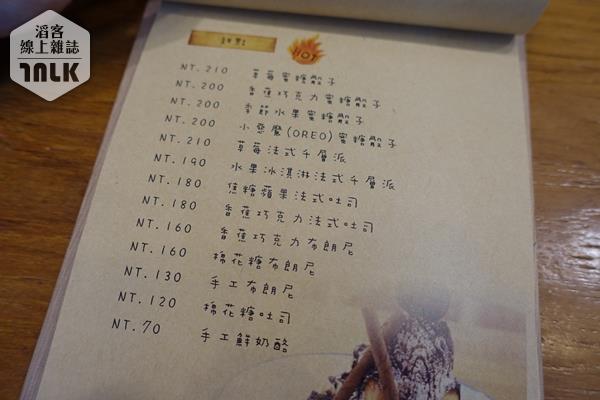 滔客
線上雜誌
TALK
甜點
HOT
NT. 210 草莓蜜糖骰子
NT. 200 香蕉巧克力蜜糖骰子
NT. 200 季節水果蜜糖骰子
NT. 200 小惡魔(OREO)蜜糖骰子
NT. 210 草莓法式千層派
NT. 190 水果冰淇淋法式千層派
NT. 180 焦糖蘋果法式吐司
NT. 180 香蕉巧克力法式吐司
NT. 160 香蕉巧克力布朗尼
NT. 160 棉花糖布朗尼
NT. 130 手工布朗尼
NT. 120 棉花糖吐司
NT. 70 手工鮮奶酪